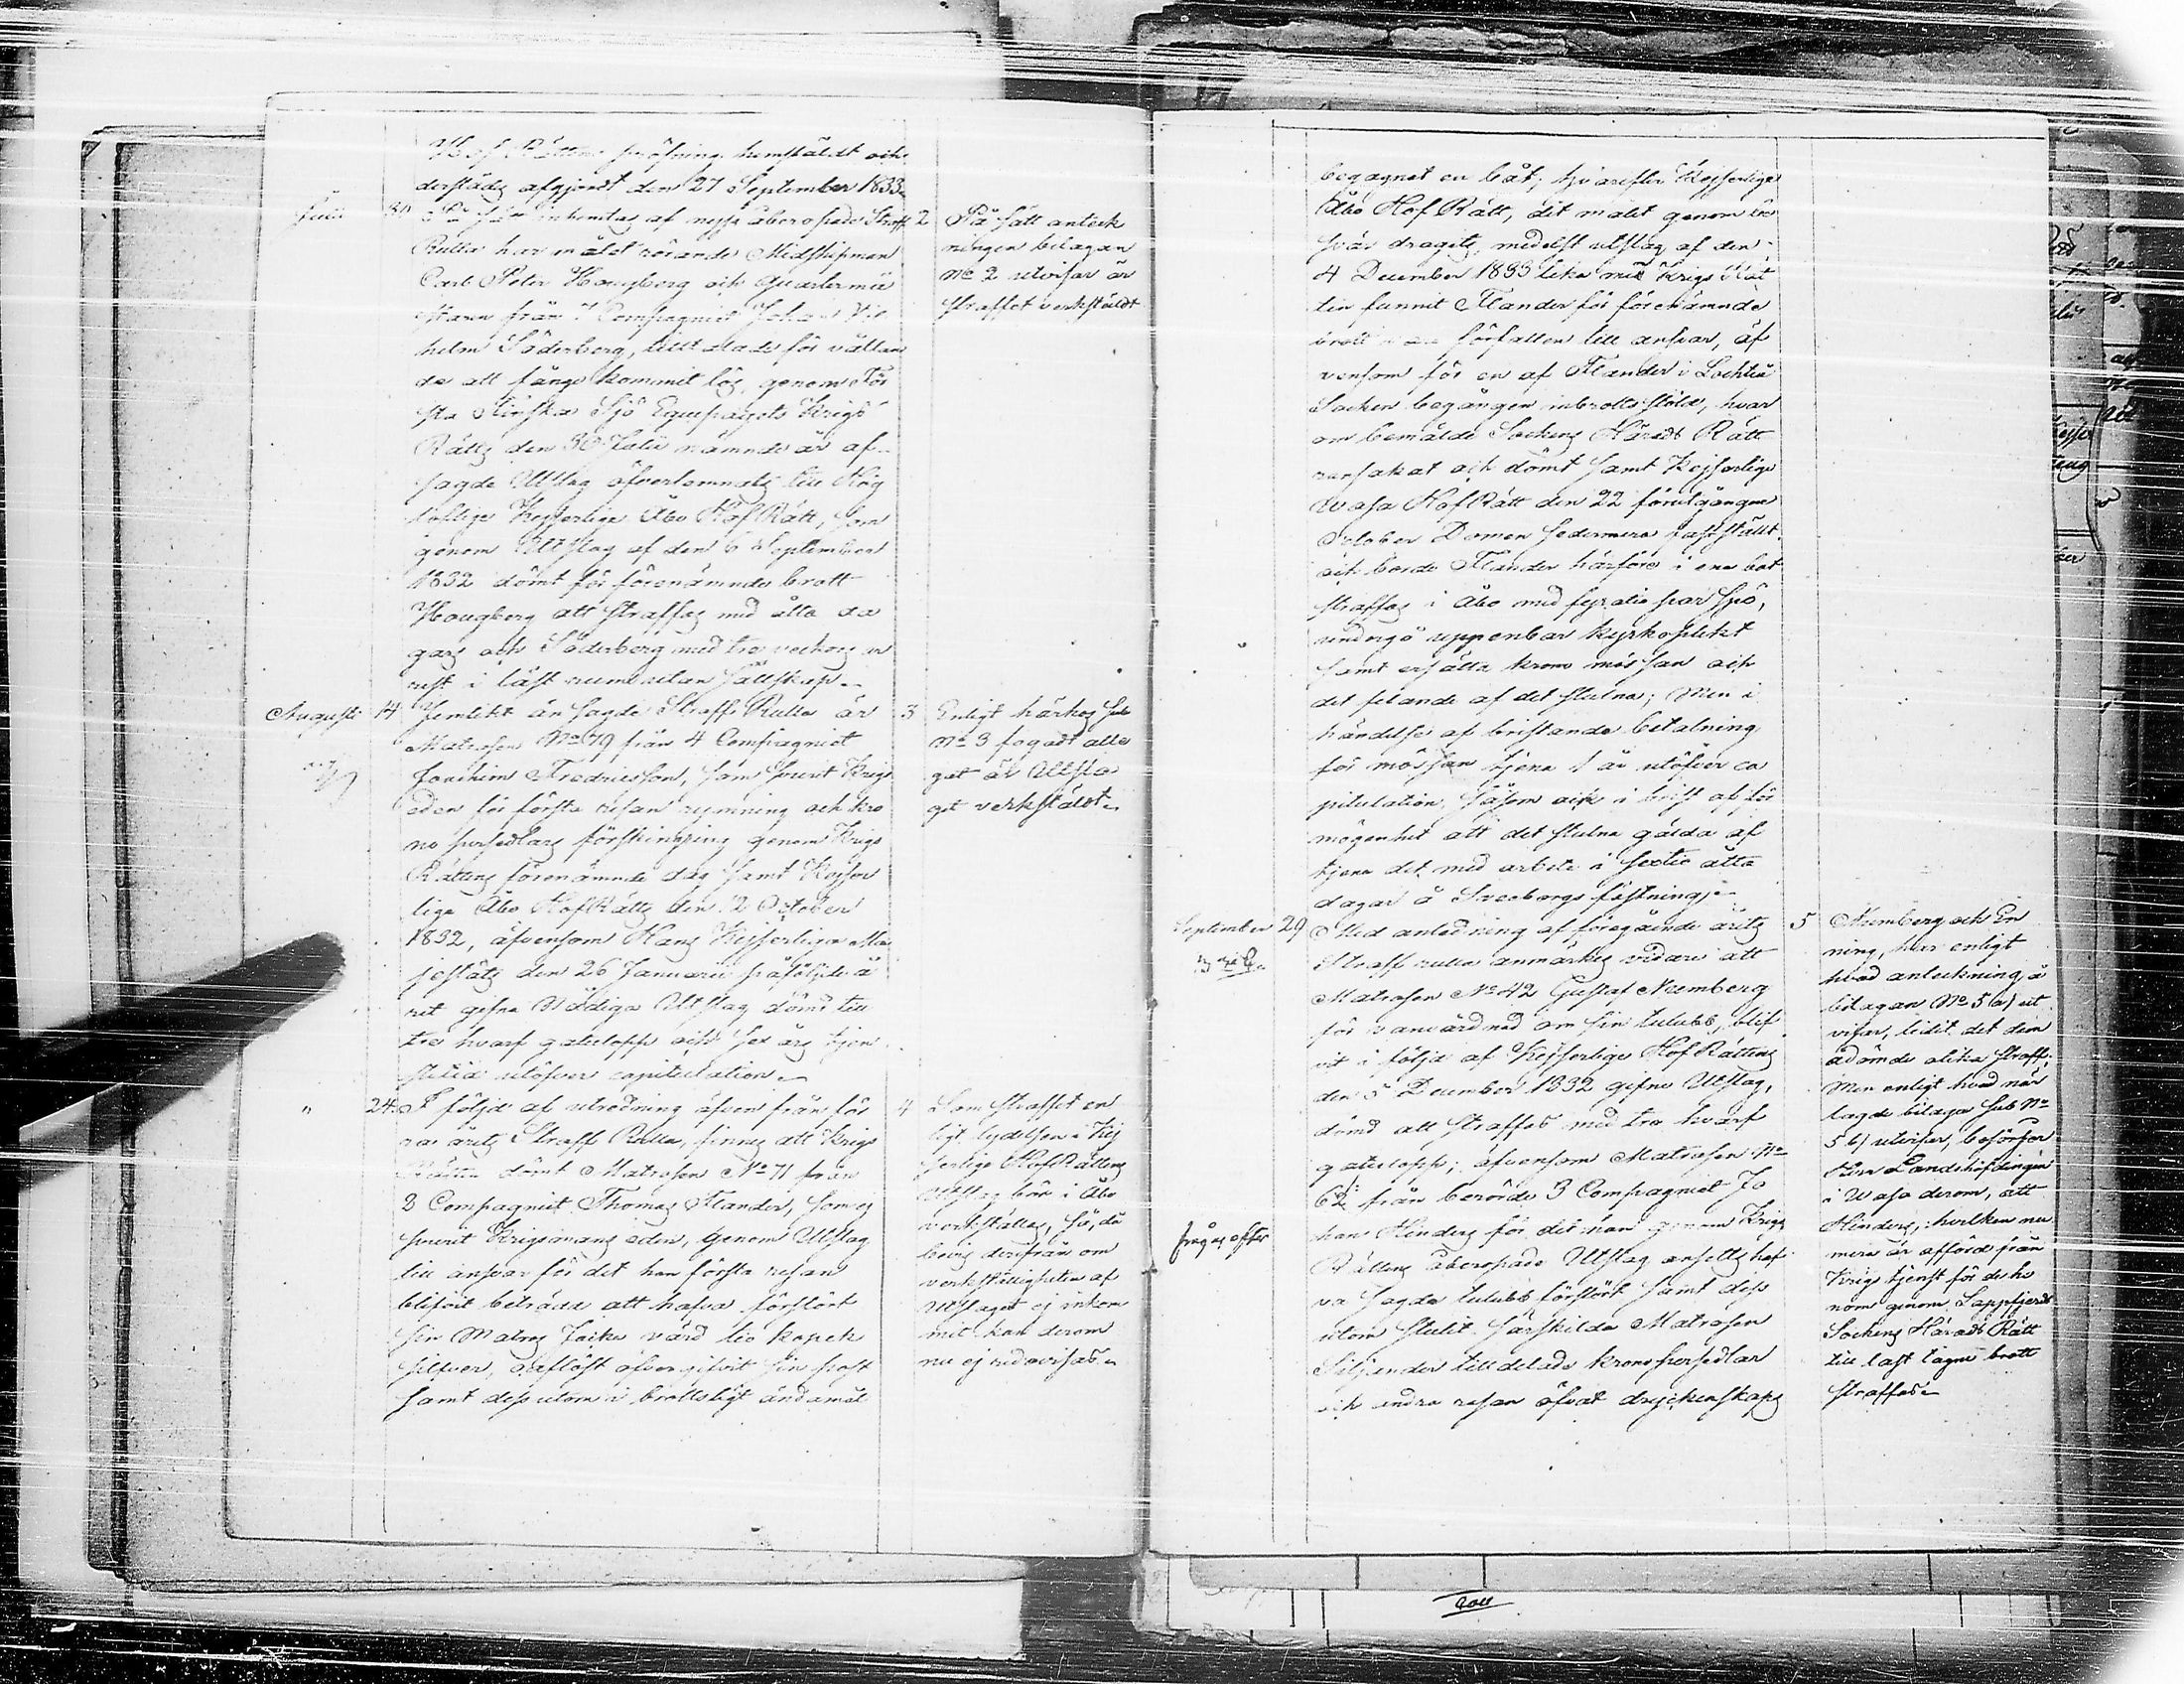 Hof Rättens pröfning hemstäldt och
derstädes afgjordt den 27 September 1833.
Julii 30 På sätt inhemtas af nyss åberopade Straff
Rulla har målet rörande Midshipman
Carl Peter Hougberg och Quartermä
staren från 1 Compagniet Johan Wil
helm Söderberg, tilltalade för vållan
de att fånge kommit lös, genom För
sta Finska Sjö Equipagets Krigs
Rätts den 30 Julii nämnde år af-
sagde Utslag öfverlemnats till Hög
loflige Kejserlige Åbo HofRätt, som
genom Utslag af den 6 September
1832 dömt för förenämnde brott
Hougberg att straffas med åtta da
gars och Söderberg med tre veckors ar
rest i låst rum utan sällskap.
Augusti 14 Jemlikt än sagde Straff Rulla är
Matrosen No 79 från 4 Compagniet
Joachim Fredricsson, som svurit Krigs
eden för första resan rymning och kro
no persedlars förskingring genom Krigs
Rättens förenämnde dag samt Kejser
lige Åbo HofRätts den 12 October
1832, äfvensom Hans Kejserliga Ma
jestäts den 26 Januarii påföljde å
ret gifna Nådiga Utslag dömd till
tre hvarf gatulopp och sex års tjen
stetid utöfver capitulation.
" 24. I följd af utredning äfven från för
ra årets Straff Rulla, finnes att Krigs
Rätten dömt Matrosen No 71 från
3 Compagniet Thomas Flander, som ej
svurit Krigsmans eden, genom Utslag
till ansvar för det han första resan
blifvit beträdd att hafva förstört
sin Matros Jacka värd tio kopek
silfver, oaflöst öfvergifvit sin post
samt dessutom i brottsligt ändamål
2 På sätt anteck
ningen bilagan
No 2 utvisar är
straffet verkstäldt
3 Enligt härhos sub
No 3 fogadt alle
gat är Utsla
get verkstäldt.
4 Som straffet en
ligt lydelsen i Kej
serlige HofRättens
Utslag bör i Åbo
verkställas, så, då
bevis derifrån om
verkställigheten af
Utslaget ej inkom
mit kan derom
nu ej redovisas.
begagnat en båt; hvarefter Kejserlige
Åbo Hof Rätt, dit målet genom be
svär dragits, medelst utslag af den
4 December 1833 lika med Krigs Rät
ten funnit Flander för förenämnde
brott vara förfallen till ansvar, äf
vensom för en af Flander i Lochteå
Socken begången inbrotts stöld, hvar
om bemälde Sockens Härads Rätt
ransakat och dömt samt Kejserlige
Wasa HofRätt den 22 förutgångne
October Domen sedermera fastställt
och borde Flander härföre i ena bot
straffas i Åbo med fyratio par spö,
undergå uppenbar kyrkoplikt
samt ersätta krono mössan och
det felande af det stulna; Men i
händelse af bristande betalning
för mössan tjena 1 år utöfver ca
pitulation, såsom ock i brist af för
mögenhet att det stulna gälda af
tjena det med arbete i sextio åtta
dagar å Sveaborgs fästning.
September 29 Med anledning af föregående årets
Straff rulla anmärkes vidare att
Matrosen No 42 Gustaf Numberg
för vanvårdnad om sin tulubb, blif
vit i följd af Kejserlige HofRättens
den 5 December 1832 gifne Utslag,
dömd att straffas med tre hvarf
gatulopp; äfvensom Matrosen No
62 från berörde 3 Compagniet Jo
han Hinders för det han genom Krigs
Rättens åberopade Utslag ansetts haf
va sagde tulubb förstört samt dess
utom stulit särskilda Matrosen
Siljander tilldelade krono persedlar
och andra resan öfvat dryckenskaps
fråges efter
5 Numberg och En
ning, har enligt
hvad anteckning å
bilagan No 5 a) ut
visar, lidit det dem
ådömde olika straff.
Men enligt hvad när
lagde bilaga sub No
5 b) utvisar, besörjer
Herr Landshöfdingen
i Wasa derom, att
Hinders, hvilken nu
mera är afförd från
Krigs tjenst för de ho
nom genom Lappfjerds
Sockens Härads Rätt
till last lagde brott
straffas.